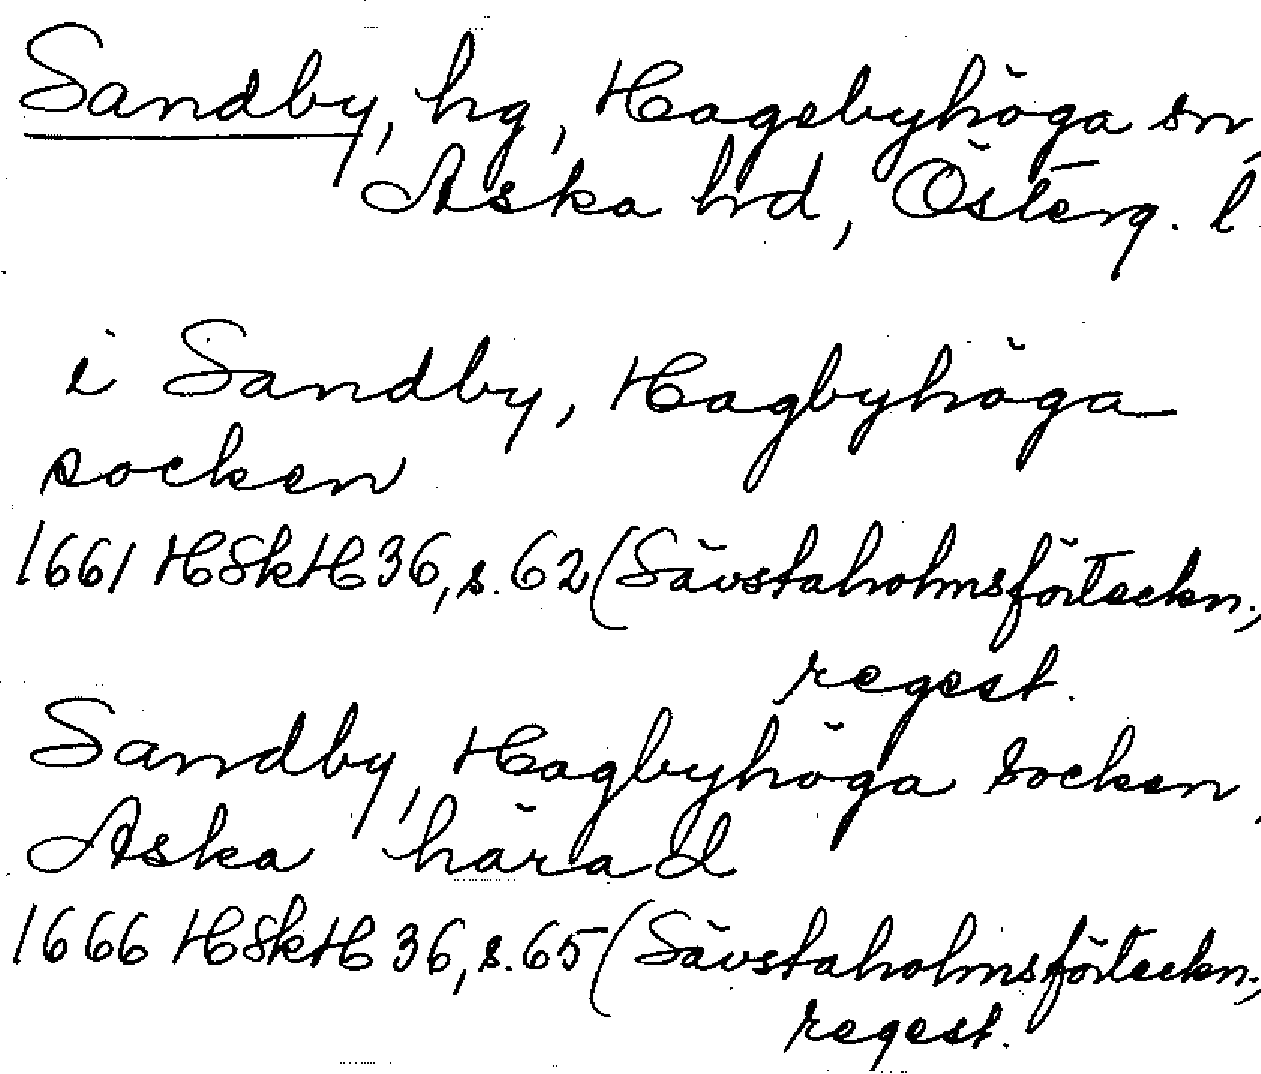 Sandby, hg, Hagebyhöga sn,
Aska hd, Österg. l
i Sandby, Hagbyhöga
socken
1661 HSkH 36, s. 62 (Sävstaholmsförteckn.,
regest.
Sandby, Hagbyhöga socken,
Aska härad
1666 HSkH 36, s. 65 (Sävstaholmsförteckn.,
regest.